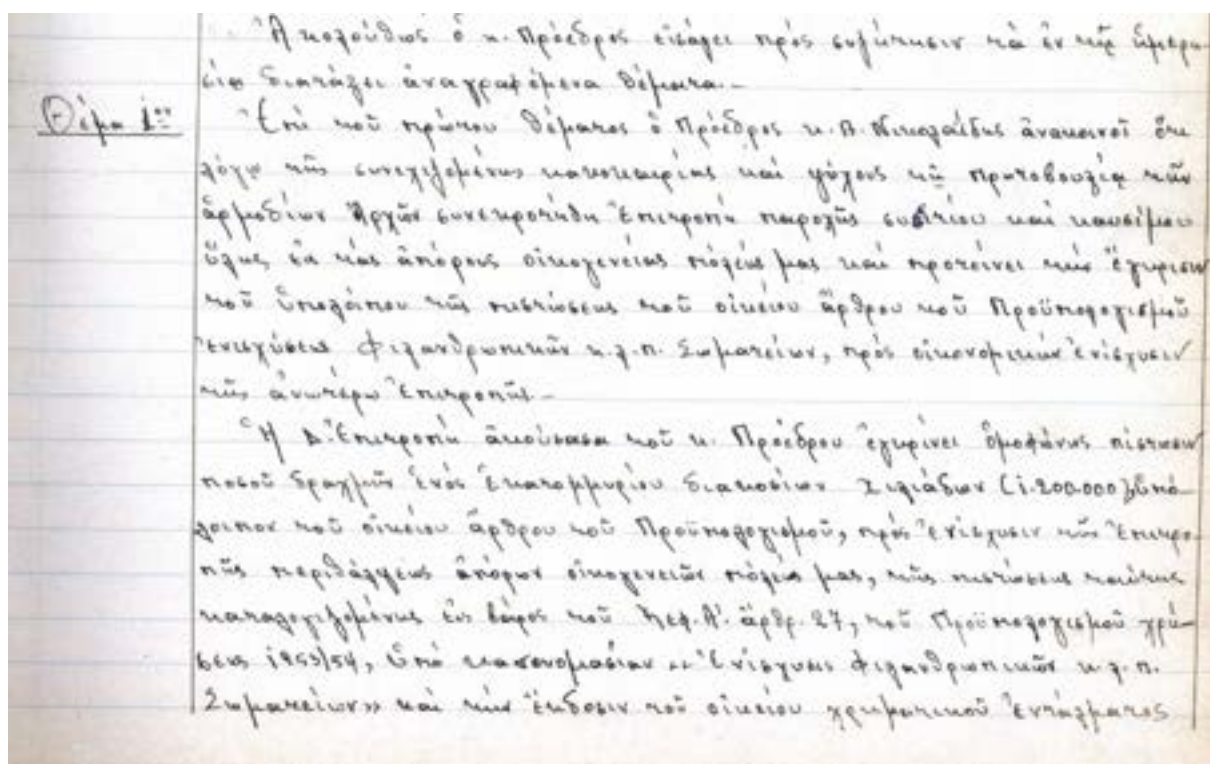 Ἀκολούθως ὁ κ. Πρόεδρος εἰσάγει πρὸς συζήτησιν τὰ ἐν τῇ ἡμερη-
σίᾳ διατάξει ἀναγραφόμενα θέματα.-
Θέμα 1ον
Ἐπὶ τοῦ πρώτου θέματος ὁ Πρόεδρος κ. Β. Νικολαΐδης ἀνακοινοῖ ὅτι
λόγῳ τῆς συνεχιζομένης κακοκαιρίας καὶ ψύχους τῇ πρωτοβουλίᾳ τῶν
ἁρμοδίων Ἀρχῶν συνεκροτήθη Ἐπιτροπὴ παροχῆς συσιτίου καὶ καυσίμου
ὕλης εἰς τὰς ἀπόρους οἰκογενείας πόλεώς μας καὶ προτείνει τὴν ἔγκρισιν
τοῦ ὑπολοίπου τῆς πιστώσεως τοῦ οἰκείου ἄρθρου τοῦ Προϋπολογισμοῦ
ἐνισχύσεως Φιλανθρωπικῶν κ.λ.π. Σωματείων, πρὸς οἰκονομικὴν ἐνίσχυσιν
τῆς ἀνωτέρω Ἐπιτροπῆς.-
Ἡ Δ. Ἐπιτροπὴ ἀκούσασα τοῦ κ. Προέδρου ἐγκρίνει ὁμοφώνως πίστωσιν
ποσοῦ δραχμῶν ἑνὸς ἑκατομμυρίου διακοσίων χιλιάδων (1.200.000) ὑπό-
λοιπον τοῦ οἰκείου ἄρθρου τοῦ Προϋπολογισμοῦ, πρὸς ἐνίσχυσιν τῆς Ἐπιτρο-
πῆς περιθάλψεως ἀπόρων οἰκογενειῶν πόλεώς μας, τῆς πιστώσεως ταύτης
καταλογιζομένης εἰς βάρος τοῦ Κεφ. Α'. ἄρθρ. 27, τοῦ Προϋπολογισμοῦ χρή-
σεως 1953/54, ὑπὸ κατονομασίαν «Ἐνίσχυσις Φιλανθρωπικῶν κ.λ.π.
Σωματείων» καὶ τὴν ἔκδοσιν τοῦ οἰκείου χρηματικοῦ ἐντάλματος